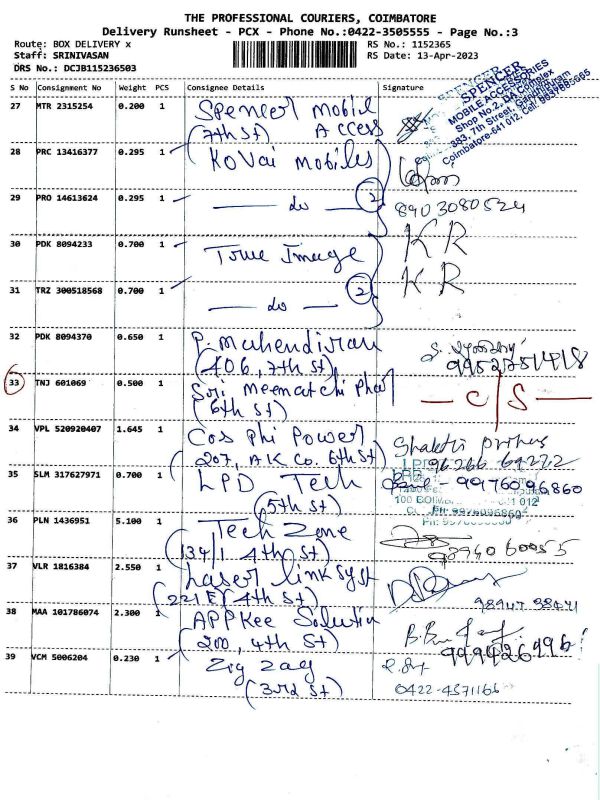 THE PROFESSIONAL COURIERS, COIMBATORE
Delivery Runsheet - PCX - Phone No.:0422-3505555 - Page No.:3
Route: BOX DELIVERY x RS No.: 1152365
Staff: SRINIVASAN RS Date: 13-Apr-2023
DRS No.: DCJB115236503
S No Consignment No Weight PCS Consignee Details Signature
SPENCER
MOBILE ACCESSORIES
Shop No.2, Complex
383, 7th Street,
Coimbatore-641 012.
27 MTR 2315254 0.200 1 Spencer Mobile
(7th st) Access
28 PRC 13416377 0.295 1 Kovai Mobiles
29 PRO 14613624 0.295 1 — do — 2 8903080524
30 PDK 8094233 0.700 1 True Image KR
KR
31 TRZ 300518568 0.700 1 — do — 2
32 PDK 8094370 0.650 1 P. Mahendiran
(406, 7th st) 9952751418
33 TNJ 601069 0.500 1 Sri Meenatchi
(6th st) — C/S —
34 VPL 520920407 1.645 1 Cos Phi Power
(207, A K Co. 6th st)
35 SLM 317627971 0.700 1 LPD Tech 9976096860
(5th st)
100 012
Ph: 9976096860
36 PLN 1436951 5.100 1 Tech Zone
(134/1 4th st)
37 VLR 1816384 2.550 1 Laser Link Syst
(221 E) (4th st)
38 MAA 101786074 2.300 1 APPKee Solution
(200, 4th st)
39 VCM 5006204 0.230 1 Zig Zag
(3rd st) 0422-4571166